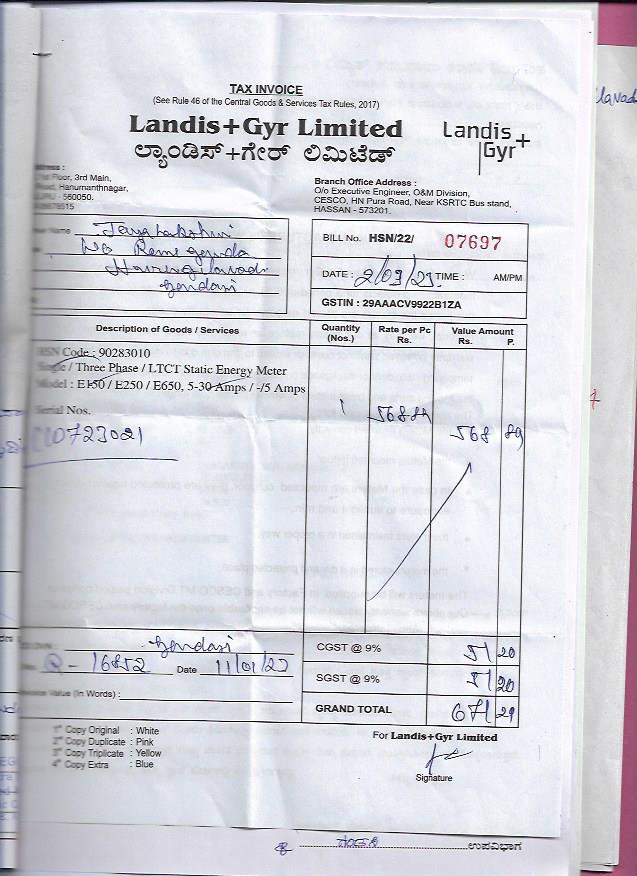 TAX INVOICE
(See Rule 46 of the Central Goods & Services Tax Rules, 2017)
Landis+Gyr Limited
ಲ್ಯಾಂಡಿಸ್+ಗೇರ್ ಲಿಮಿಟೆಡ್
Landis+
Gyr
Floor, 3rd Main,
Hanumanthnagar,
560050.
Branch Office Address :
O/o Executive Engineer, O&M Division,
CESCO, HN Pura Road, Near KSRTC Bus stand,
HASSAN - 573201.
Name
W/o
Gendasi
BILL No. HSN/22/ 07697
DATE : 2/03/23 TIME : AM/PM
GSTIN : 29AAACV9922B1ZA
Description of Goods / Services
Quantity (Nos.)
Rate per Pc Rs.
Value Amount Rs. P.
HSN Code : 90283010
Single / Three Phase / LTCT Static Energy Meter
Model : E150 / E250 / E650, 5-30 Amps / -/5 Amps
Serial Nos.
1 568 89 568 89
Gendasi
16852 Date 11/01/23
Value (In Words) :
CGST @ 9% 51 20
SGST @ 9% 51 20
GRAND TOTAL 671 29
1st Copy Original : White
2nd Copy Duplicate : Pink
3rd Copy Triplicate : Yellow
4th Copy Extra : Blue
For Landis+Gyr Limited
Signature
ಉಪವಿಭಾಗ